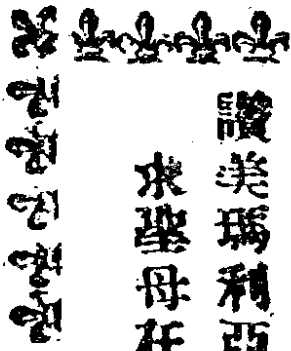 讚美瑪利亞
求聖母